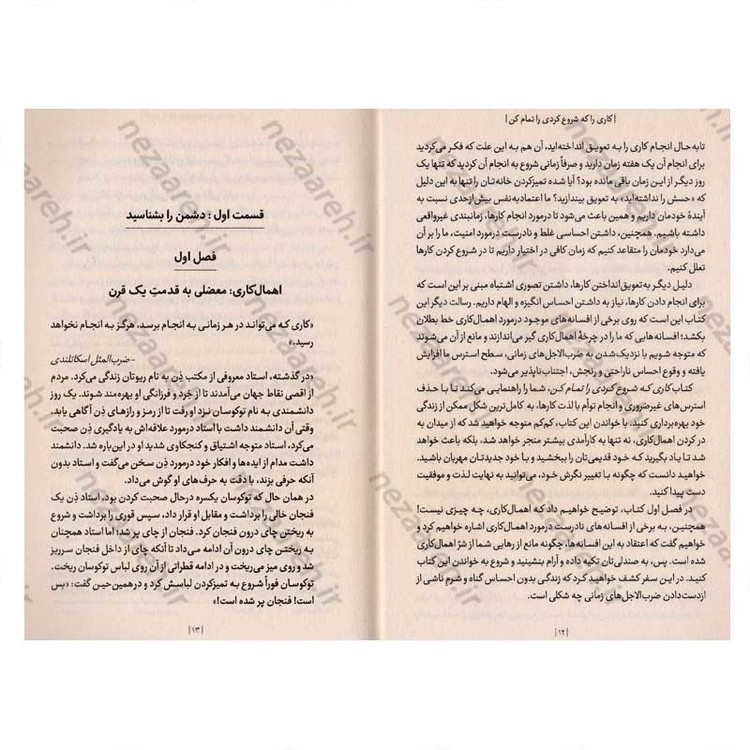 | کاری را که شروع کردی را تمام کن |
تابه‌حال انجام کاری را به تعویق انداخته‌اید، آن هم به این علت که فکر می‌کردید
برای انجام آن یک هفته زمان دارید و صرفاً زمانی شروع به انجام آن کردید که تنها یک
روز دیگر از این زمان باقی مانده بود؟ آیا شده تمیزکردن خانه‌تان را تنها به این دلیل
که «حسش را نداشته‌اید» به تعویق بیندازید؟ ما اعتمادبه‌نفس بیش‌ازحدی نسبت به
آیندهٔ خودمان داریم و همین باعث می‌شود تا درمورد انجام کارها، زمانبندی غیرواقعی
داشته باشیم. همچنین، داشتن احساسی غلط و نادرست درمورد امنیت، ما را بر آن
می‌دارد خودمان را متقاعد کنیم که زمان کافی در اختیار داریم تا در شروع کردن کارها
تعلل کنیم.
دلیل دیگر به‌تعویق‌انداختن کارها، داشتن تصوری اشتباه مبنی بر این است که
برای انجام دادن کارها، نیاز به داشتن احساس انگیزه و الهام داریم. رسالت دیگر این
کتاب این است که روی برخی از افسانه‌های موجود درمورد اهمال‌کاری خط بطلان
بکشد؛ افسانه‌هایی که ما را در چرخهٔ اهمال‌کاری گیر می‌اندازند و مانع از آن می‌شوند
که متوجه شویم با نزدیک‌شدن به ضرب‌الاجل‌های زمانی، سطح استرس ما افزایش
یافته و وقوع احساس ناراحتی و رنجش، اجتناب‌ناپذیر می‌شود.
کتاب کاری که شروع کردی را تمام کن، شما را راهنمایی می‌کند تا با حذف
استرس‌های غیرضروری و انجام توأم با لذت کارها، به کامل‌ترین شکل ممکن از زندگی
خود بهره‌برداری کنید. با خواندن این کتاب، کم‌کم متوجه خواهید شد که از میدان به
در کردن اهمال‌کاری، نه تنها به کارآمدی بیشتر منجر خواهد شد، بلکه باعث خواهد
شد تا یاد بگیرید که خود قدیمی‌تان را ببخشید و با خود جدیدتان مهربان باشید.
خواهید دانست که چگونه با تغییر نگرش خود، می‌توانید به نهایت لذت و موفقیت
دست پیدا کنید.
در فصل اول کتاب، توضیح خواهیم داد که اهمال‌کاری، چه چیزی نیست!
همچنین، به برخی از افسانه‌های نادرست درمورد اهمال‌کاری اشاره خواهیم کرد و
خواهیم گفت که اعتقاد به این افسانه‌ها، چگونه مانع از رهایی شما از شرّ اهمال‌کاری
شده است. پس، به صندلی‌تان تکیه داده و آرام بنشینید و شروع به خواندن این کتاب
کنید. در این سفر کشف خواهید کرد که زندگی بدون احساس گناه و شرم ناشی از
ازدست‌دادن ضرب‌الاجل‌های زمانی چه شکلی است.
|۱۲|
قسمت اول : دشمن را بشناسید
فصل اول
اهمال‌کاری: معضلی به قدمتِ یک قرن
«کاری که می‌تواند در هر زمانی به انجام برسد، هرگز به انجام نخواهد
رسید.»
-ضرب‌المثل اسکاتلندی
«در گذشته، استاد معروفی از مکتب ذِن به نام ریوتان زندگی می‌کرد. مردم
از اقصی نقاط جهان می‌آمدند تا از خِرد و فرزانگی او بهره‌مند شوند. یک روز
دانشمندی به نام توکوسان نزد او رفت تا از رمز و رازهای ذِن آگاهی یابد.
وقتی آن دانشمند داشت با استاد درمورد علاقه‌اش به یادگیری ذِن صحبت
می‌کرد، استاد متوجه اشتیاق و کنجکاوی شدید او در این‌باره شد. دانشمند
داشت مدام از ایده‌ها و افکار خود درمورد ذِن سخن می‌گفت و استاد بدون
آنکه حرفی بزند، با دقت به حرف‌های او گوش می‌داد.
در همان حال که توکوسان یکسره درحال صحبت کردن بود، استاد ذِن یک
فنجان خالی را برداشت و مقابل او قرار داد، سپس قوری را برداشت و شروع
به ریختن چای درون فنجان کرد. فنجان از چای پر شد؛ اما استاد همچنان
به ریختن چای درون آن ادامه می‌داد تا آنکه چای از داخل فنجان سرریز
شد و روی میز می‌ریخت و در ادامه قطراتی از آن روی لباس توکوسان ریخت.
توکوسان فوراً شروع به تمیزکردن لباسش کرد و در همین حین گفت: «بس
است! فنجان پر شده است!»
|۱۳|
nezaareh.ir
nezaareh.ir
nezaareh.ir
nezaareh.ir
nezaareh.ir
nezaareh.ir